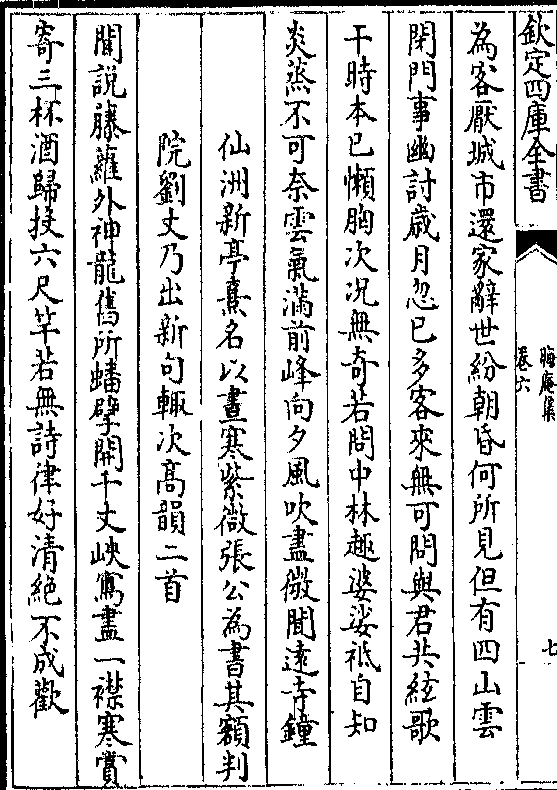 欽定四庫全書
晦庵集
卷六
七
為客厭城市還家辭世紛朝昏何所見但有四山雲
閉門事幽討歲月忽已多客來無可問與君共絃歌
干時本已懶胸次況無奇若問中林趣婆娑祗自知
炎蒸不可奈雲氣滿前峰向夕風吹盡微聞遠寺鐘
仙洲新亭熹名以晝寒紫微張公為書其額判
院劉丈乃出新句輙次高韻二首
聞說藤蘿外神龍舊所蟠擘開千丈峽寫盡一襟寒賞
寄三杯酒歸投六尺竿若無詩律好清絶不成歡